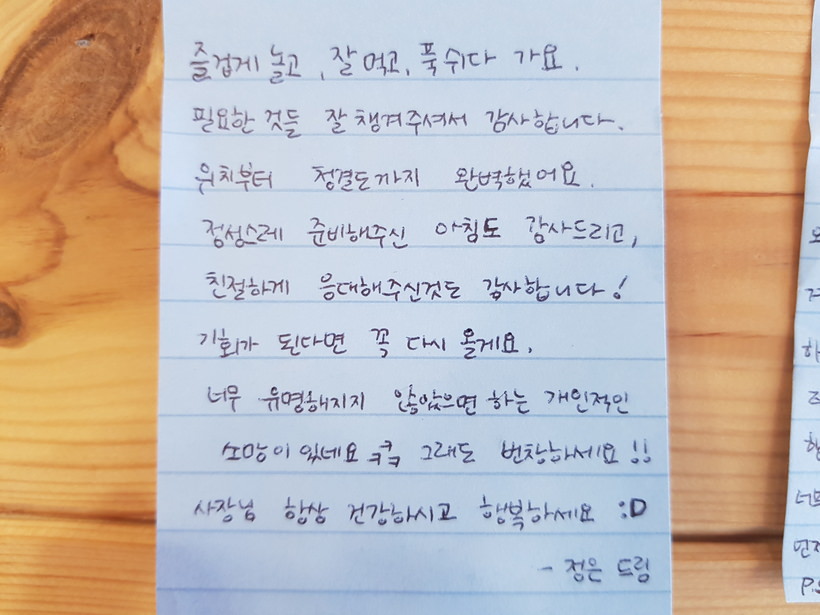 즐겁게 놀고, 잘 먹고, 푹 쉬다 가요.
필요한 것들 잘 챙겨주셔서 감사합니다.
위치부터 청결도까지 완벽했어요.
정성스레 준비해주신 아침도 감사드리고,
친절하게 응대해주신것도 감사합니다!
기회가 된다면 꼭 다시 올게요.
너무 유명해지지 않았으면 하는 개인적인
소망이 있네요 ㅋㅋㅋ 그래도 번창하세요!!
사장님 항상 건강하시고 행복하세요 :D
- 정은 드림
P.S